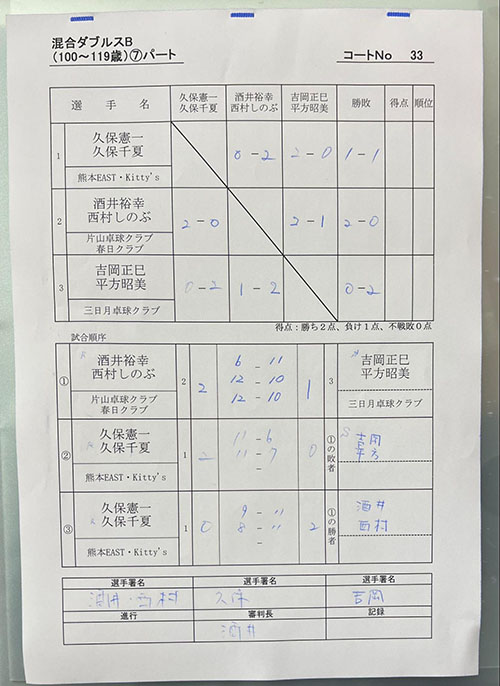 混合ダブルスB
(100～119歳)⑦パート
コートNo 33
選手名 久保憲一 久保千夏 酒井裕幸 西村しのぶ 吉岡正巳 平方昭美 勝敗 得点 順位
1 久保憲一 久保千夏 0-2 2-0 1-1
熊本EAST・Kitty's
2 酒井裕幸 西村しのぶ 2-0 2-1 2-0
片山卓球クラブ
春日クラブ
3 吉岡正巳 平方昭美 0-2 1-2 0-2
三日月卓球クラブ
得点：勝ち２点、負け１点、不戦敗０点
試合順序
① 酒井裕幸 西村しのぶ 2 2 6-11 12-10 12-10 1 3 吉岡正巳 平方昭美
片山卓球クラブ 春日クラブ 三日月卓球クラブ
② 久保憲一 久保千夏 1 2 11-6 11-7 - 0 ①の敗者 吉岡 平方
熊本EAST・Kitty's
③ 久保憲一 久保千夏 1 0 9-11 8-11 - 2 ①の勝者 酒井 西村
熊本EAST・Kitty's
選手署名 選手署名 選手署名
酒井・西村 久保 吉岡
進行 審判長 記録
酒井